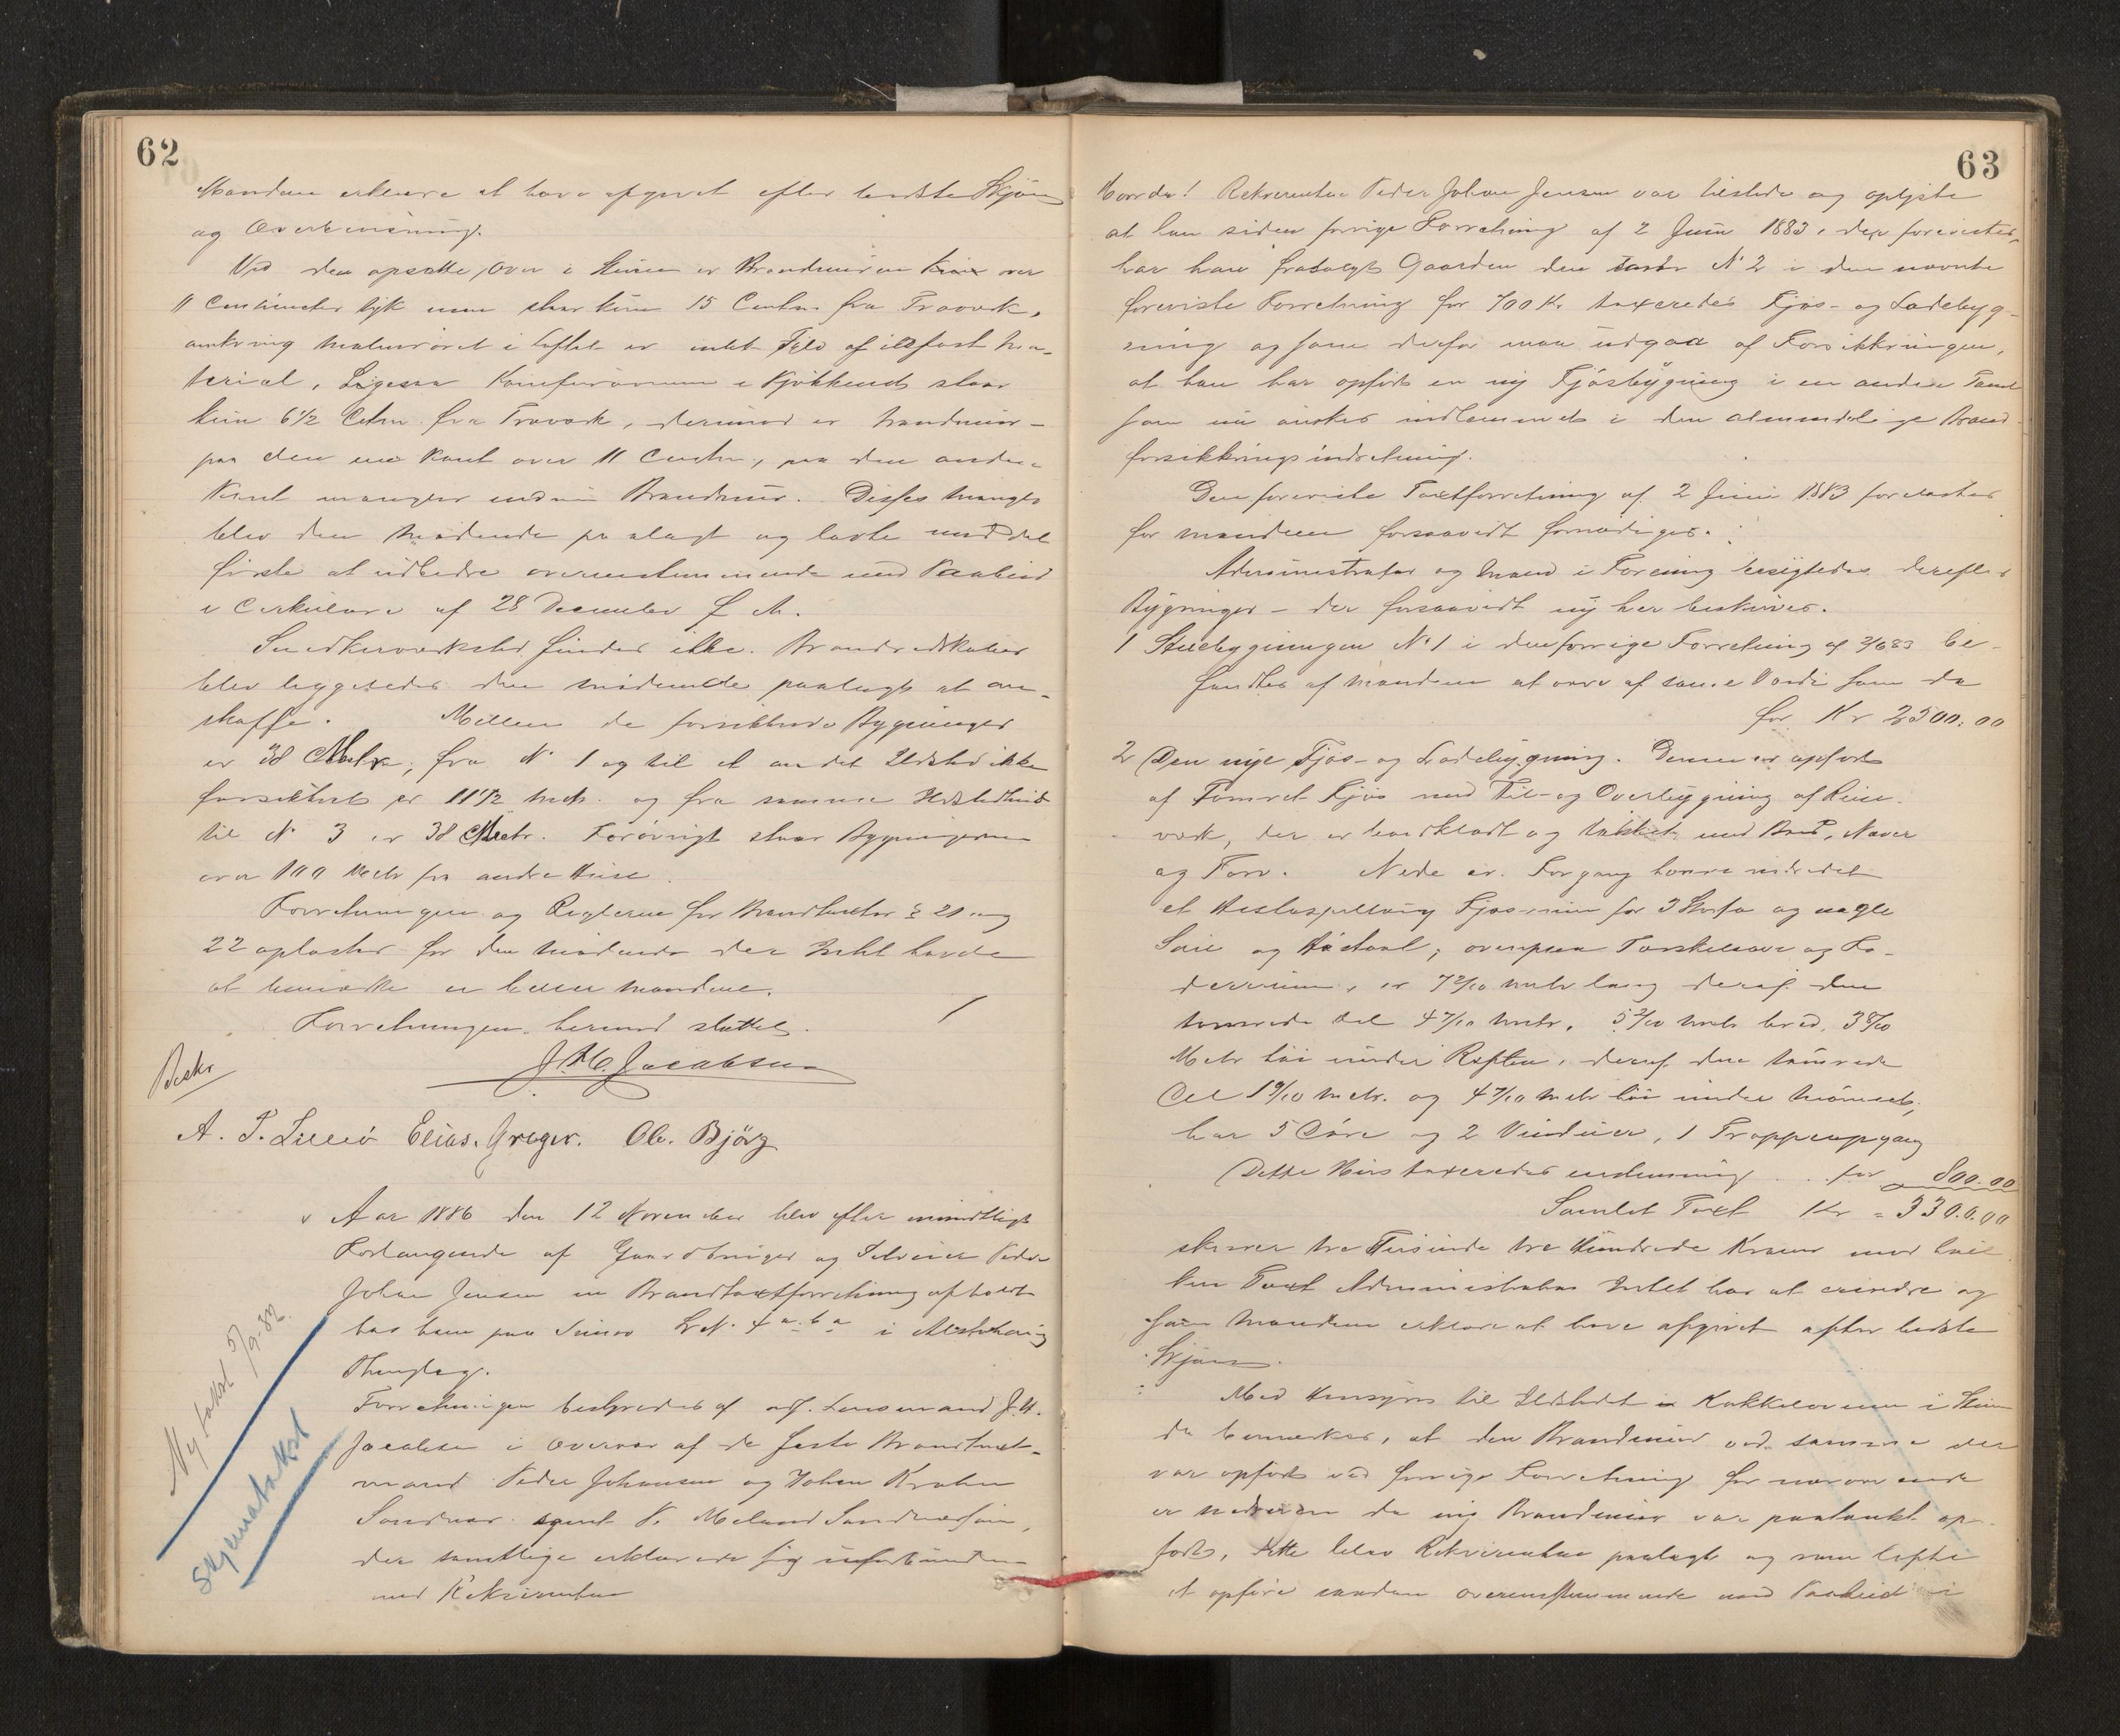 62
Mændene erklære at have afgivet efter bedste Skjøn
og Overbevisning.
Ved den opsatte Ovn i Stuen er Brandmuren over
11 Centimeter tyk men staar kun 15 Centm. fra Træverk,
omkring i Loftet er intet Fyld af ildfast Ma-
terial, Ligesaa i Kjøkkenet staar
kun 6 1/2 Cetm. fra Træverk, derimod er Brandmur
paa den ene Kant over 11 Centm., paa den anden
Kant mangler endnu Brandmur. Disse Mangler
blev den Mødende paalagt og lovte med det
første at udbedre overensstemmende med Paabud
i Cirkulære af 28 December f. A.
Snedkerverksted findes ikke. Brandredskaber
blev den Mødende paalagt at an-
skaffe. Mellem de forsikkrede Bygninger
er 38 Meter, fra No 1 og til et andet Ildsted ikke
forsikkret er 11 1/2 Metr. og fra samme
til No 3 er 38 Metr. Forøvrigt staar Bygningerne
over 100 Metr fra andre Huse.
Forretningen og Reglerne for Brandtaxter § 21 og
22 oplæstes for den Mødende der Intet havde
at bemærke ei heller Mændene.
Forretningen hermed sluttet.
J. H. Jacobsen
Beskr
A. P. Elias Greger. Ole Bjørg
Aar 1886 den 12 November blev efter mundtligt
Forlangende af Gaardbruger og Selveier Peder
Johan Jensen en Brandtaxtforretning afholdt
hos ham paa L No. 4 a. b a i Alstahaug
Thinglag.
Forretningen bestyredes af Lensmand J. H.
Jacobsen i Overvær af de faste Brandtaxt-
mænd Peder Johansen og Johan
P. Meland
der samtlige erklærede sig uforbundne
med Rekvirenten
Ny takst 5/9-32.
Skjematakst
63
Rekvirenten Peder Johan Jensen var tilstede og oplyste
at han siden forrige Forretning af 2 Juni 1883, der forevistes,
har han frasolgt Gaarden den under No 2 i den nævnte
foreviste Forretning for 700 Kr. taxeredes Fjøs- og Ladebyg-
ning og som derfor maa udgaa af Forsikkringen,
at han har opført en ny Fjøsbygning i en anden
som nu ønskes indlemmet i den almindelige Brand-
forsikkringsindretning.
Den foreviste Taxtforretning af 2 Juni 1883 forelæstes
for Mændene forsaavidt fornødiges.
Administrator og Mænd i Forening besigtedes derefter
Bygninger - der forsaavidt ny her beskrives.
1 Stuebygningen No 1 i den forrige Forretning af 2/6 83 be-
fandtes af Mændene at være af samme Værdi som da
for Kr 2500.00
2 Den nye Fjøs- og Ladebygning. Denne er opført
af Tømret Fjøs med Til- og Overbygning af Reise-
verk, der er bordklædt og tækket med Bord, Næver
og Torv. Nede er Forgang indredet
et Fjøsrum for 3 Storfæ og nogle
og overpaa Tærskelaave og Fo-
derrum, er 7 2/10 Metr lang deraf den
tømrede Del 4 7/10 Metr, 5 2/10 Metr bred, 3 8/10
Metr høi under Raften, deraf den tømrede
Del 1 9/10 Metr. og 4 7/10 Metr høi under Mønnet,
har 5 Døre og 2 Vinduer, 1 Trappeopgang
Dette Hus taxeredes for 800.00
Samlet Taxt Kr = 3300.00
skriver tre Tusinde tre Hundrede Kroner mod hvil-
ken Taxt Administrator Intet har at erindre og
som Mændene erklære at have afgivet efter bedste
Skjøn.
Med Hensyn til Ildstedet Kakkelovnen i Stuen
da bemærkes, at den Brandmur ved samme der
var opført ved forrige Forretning for nærværende
er nedreven da ny Brandmur var paatænkt op-
ført, dette blev Rekvirenten paalagt og som lovte
at opføre saadan overensstemmende med Paabud i